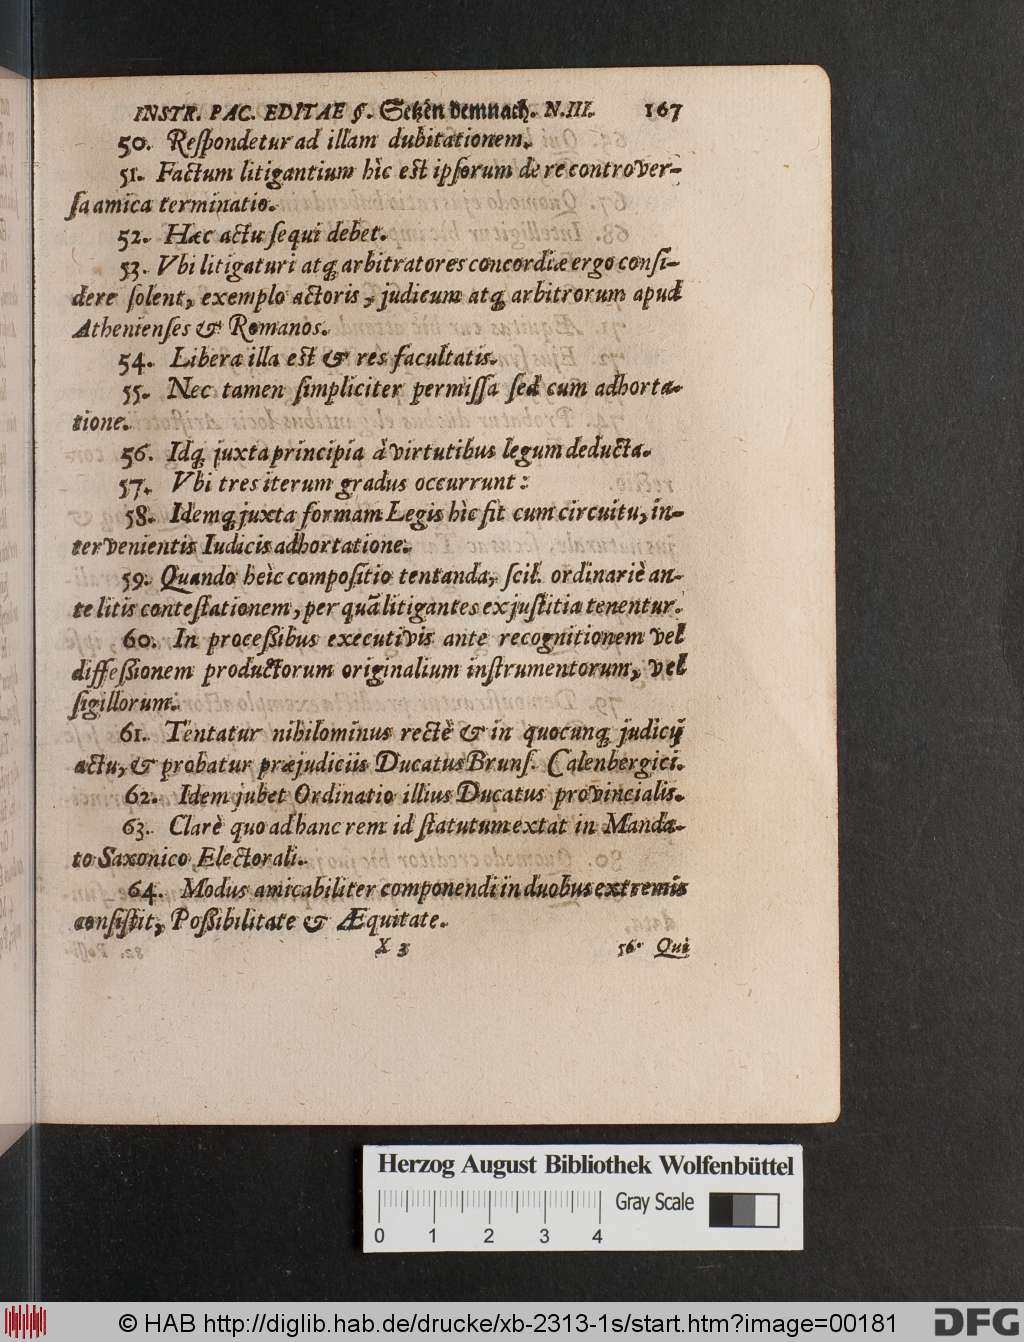 INSTR. PAC. EDITAE §. Setzen demnach. N. III. 167
50. Reſpondetur ad illam dubitationem.
51. Factum litigantium hìc est ipſorum de re controver-
ſa amica terminatio.
52. Hæc actu ſequi debet.
53. Vbi litigaturi atq; arbitratores concordiæ ergo conſi-
dere ſolent, exemplo actoris, judicum atq; arbitrorum apud
Athenienſes & Romanos.
54. Libera illa est & res facultatis.
55. Nec tamen ſimpliciter permiſſa ſed cum adhorta-
tione.
56. Idq; juxta principia à virtutibus legum deducta.
57. Vbi tres iterum gradus occurrunt:
58. Idemq; juxta formam Legis hìc fit cum circuitu, in-
tervenientis Iudicis adhortatione.
59. Quando heìc compoſitio tentanda, ſcil. ordinariè an-
te litis conteſtationem, per quã litigantes ex juſtitia tenentur.
60. In proceſſibus executivis ante recognitionem vel
diffeſſionem productorum originalium inſtrumentorum, vel
ſigillorum.
61. Tentatur nihilominus rectè & in quocunq; judicij
actu, & probatur præjudiciis Ducatus Brunſ. Calenbergici.
62. Idem jubet Ordinatio illius Ducatus provincialis.
63. Clarè quo ad hanc rem id ſtatutum extat in Manda-
to Saxonico Electorali.
64. Modus amicabiliter componendi in duobus extremis
conſiſtit, Poſſibilitate & Æquitate.
X 3 56. Qui
Herzog August Bibliothek Wolfenbüttel
Gray Scale
0 1 2 3 4
© HAB http://diglib.hab.de/drucke/xb-2313-1s/start.htm?image=00181 DFG